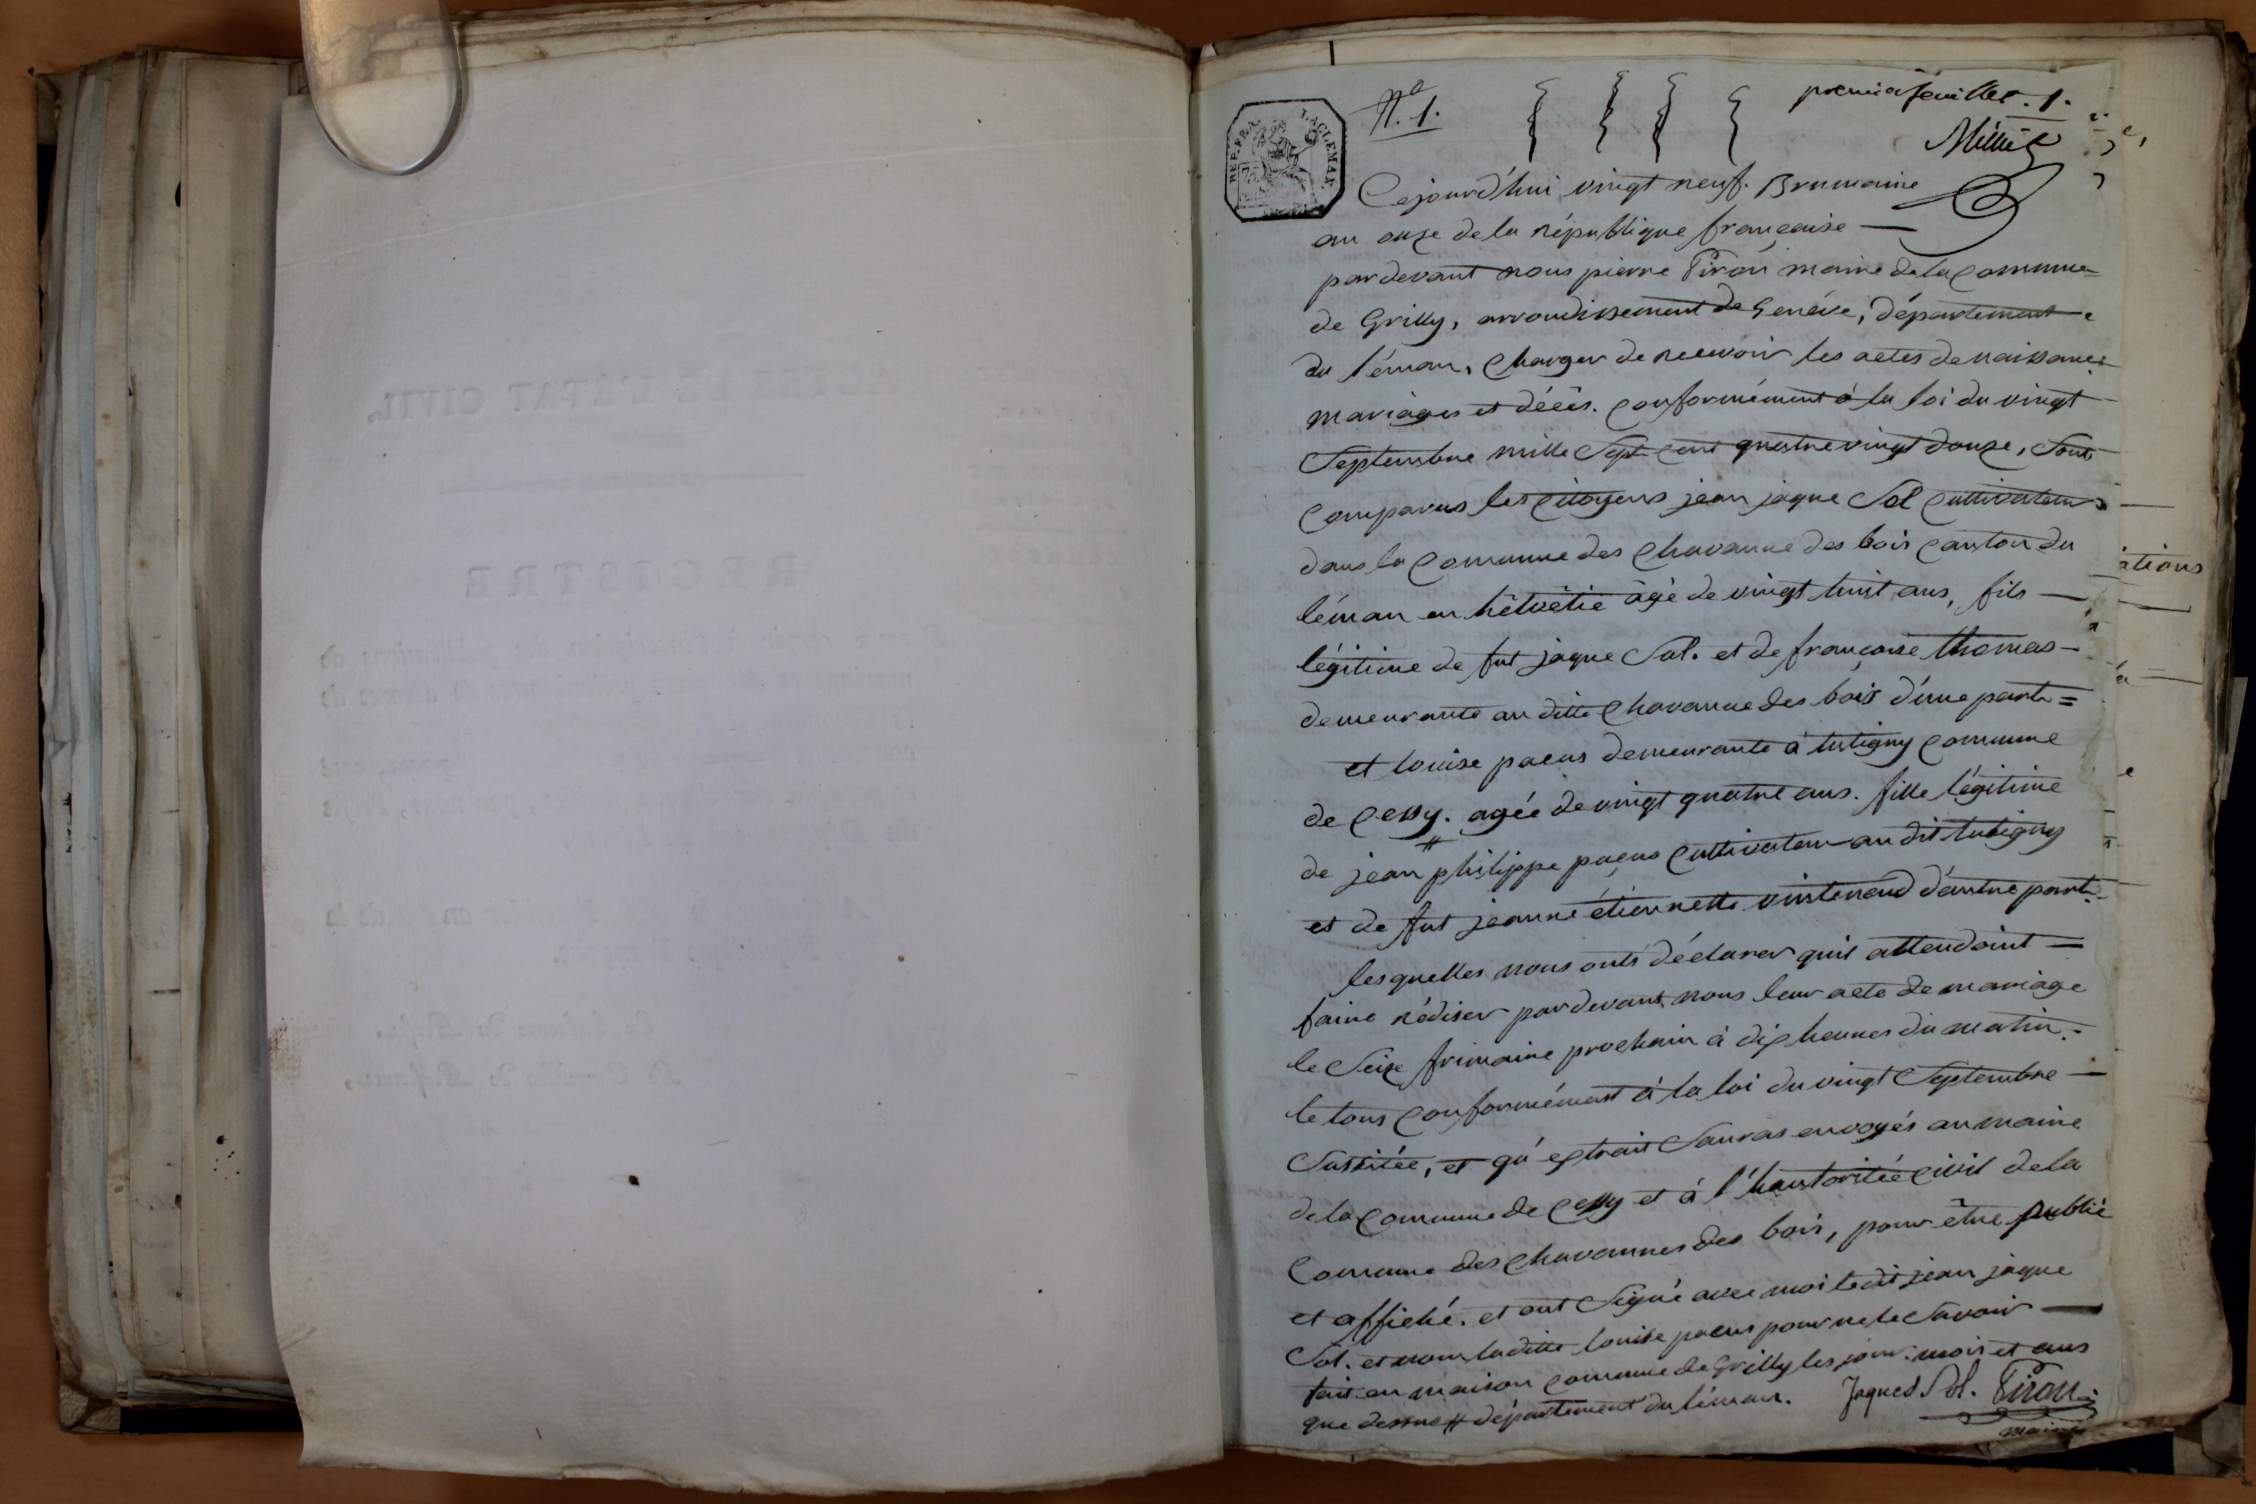 N.o 1.
premier feuillet. 1.
Millié
REP. FRA.
75
Cejourd'hui vingt neuf. Brumaire
an onze de la république françaice
pardevant nous pierre Piron maire de la commune
de Grilly, arrondissement de Genève, département
du léman, charger de recevoir les actes de naissances
mariages et décès. conformément à la loi du vingt
Septembre mille Sept cent quatre vingt douze, Sont
comparus les citoyens jean jaque Sol cultivateur
dans la commune des chavanne des bois canton du
léman en hélvétie àgé de vingt huit ans, fils
légitime de fut jaque Sol. et de françoise thomas
demeurante au ditte chavanne des bois d'une part =
et louise pacus demeurante à tutigny commune
de Cessy. agée de vingt quatre ans. fille légitime
de jean philippe pacus cultivateur au dit tutigny
et de fut jeanne étiennette vintenend d'autre part
lesquelles nous onts déclarer quil attendoint
faire rédiser pardevant nous leur acte de mariage
le Seize frimaire prochain à dix heures du matin.
le tous conformément à la loi du vingt Septembre
Sussitée, et qu'extrait Sauras envoyés au maire
de la commune de Cessy et à l'hautoritée civil de la
commune des chavannes des bois, pour être publié
et affiché. et ont Signé avec moi ledit jean jaque
Sol. et non laditte louise pacus pour ne le Savoir
fait en maison commune de Grilly les jour. mois et ans
que dessus # département du léman. Jaques Sol. Piron
maire
ations